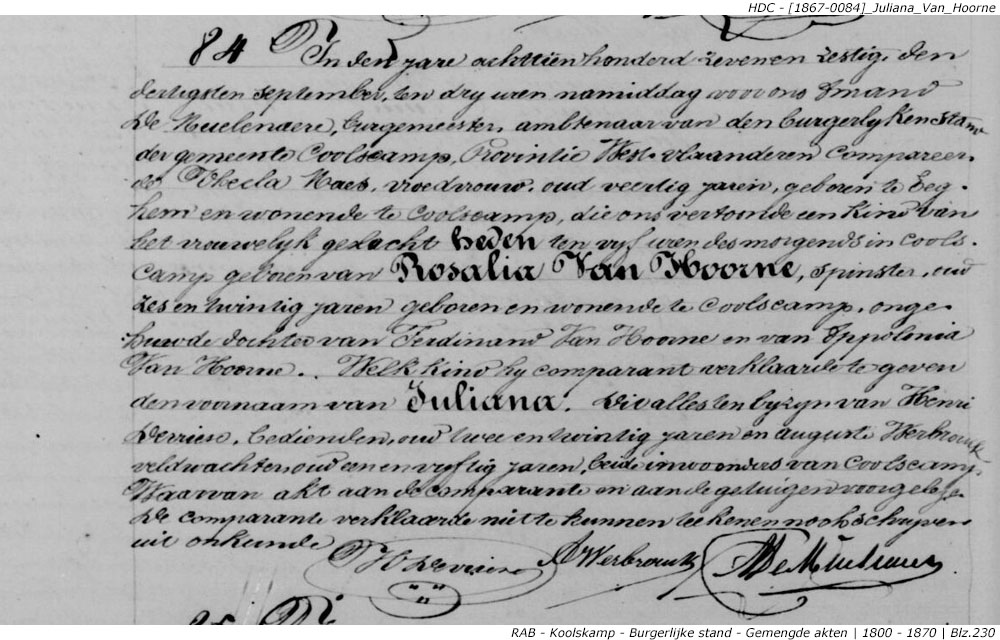 HDC - [1867-0084]_Juliana_Van_Hoorne
84 In den jare achttien honderd zeven en zestig, den
dertigsten september, ten dry uren namiddag voor ons Amand
De Muelenaere, burgemeester, ambtenaar van den burgerlyken stand
der gemeente Coolscamp, Provintie West-vlaanderen compareer-
de Thecla Maes, vroedvrouw, oud veertig jaren, geboren te Eeg-
hem en wonende te Coolscamp, die ons vertoonde een kind van
het vrouwelyk geslacht heden ten vyf uren des morgends in cools-
camp geboren van Rosalia Van Hoorne, spinster, oud
zes en twintig jaren geboren en wonende te Coolscamp, onge-
huwde dochter van Ferdinand Van Hoorne en van Appolonia
Van Hoorne. Welk kind hy comparant verklaarde te geven
den voornaam van Juliana. Dit alles ten byzyn van Henri
Derriese, bedienden, oud twee en twintig jaren en auguste Werbrouck
veldwachter, oud een en vyftig jaren, beide inwoonders van Coolscamp,
Waarvan akt aan de comparante en aan de getuigen voorgelezen
De comparante verklaarde niet te kunnen teekenen noch schryven
uit oorkunde
H Derriese AWerbrouck ADeMuelenaere
RAB - Koolskamp - Burgerlijke stand - Gemengde akten | 1800 - 1870 | Blz.230